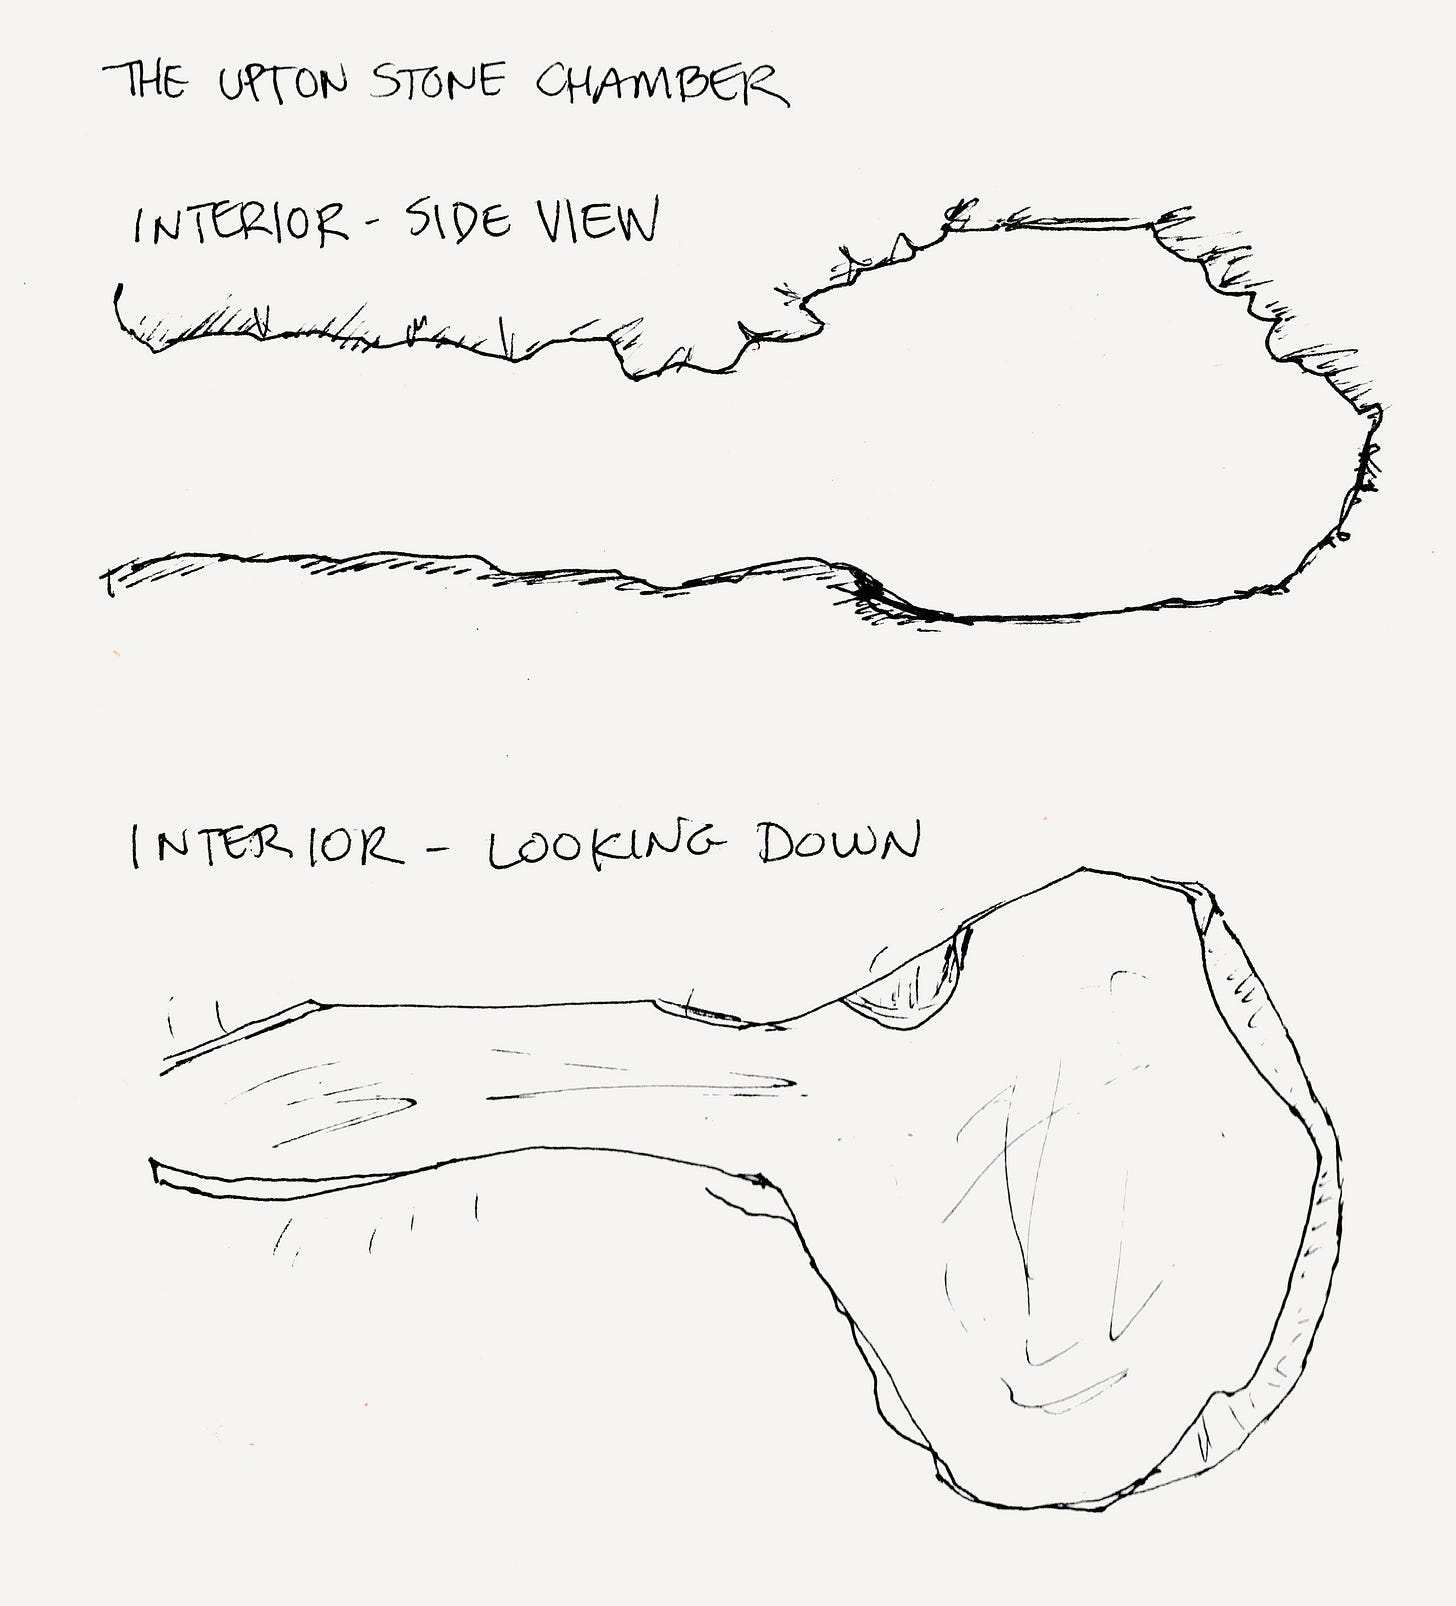 THE UPTON STONE CHAMBER
INTERIOR - SIDE VIEW
INTERIOR - LOOKING DOWN